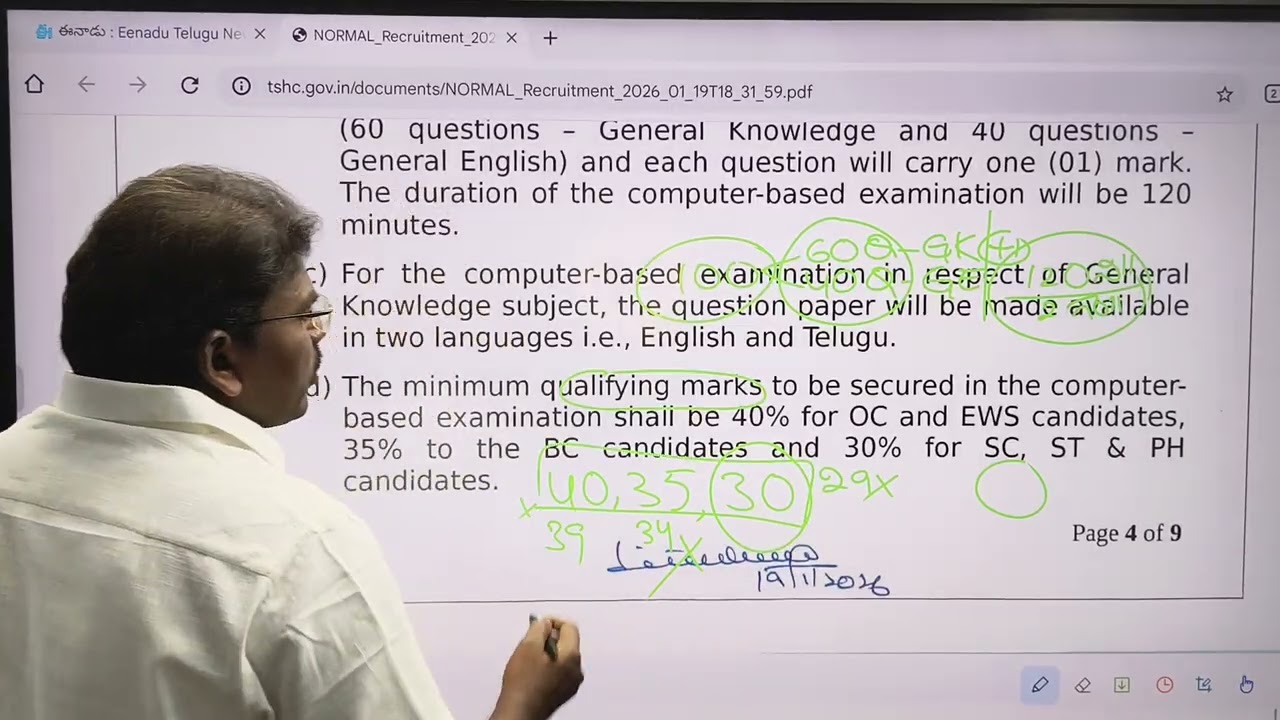 ఈనాడు : Eenadu Telugu Ne
NORMAL_Recruitment_202
tshc.gov.in/documents/NORMAL_Recruitment_2026_01_19T18_31_59.pdf
2
(60 questions – General Knowledge and 40 questions –
General English) and each question will carry one (01) mark.
The duration of the computer-based examination will be 120
minutes.
60Q-GK
100
40Q
120
c) For the computer-based examination in respect of General
Knowledge subject, the question paper will be made available
in two languages i.e., English and Telugu.
d) The minimum qualifying marks to be secured in the computer-
based examination shall be 40% for OC and EWS candidates,
35% to the BC candidates and 30% for SC, ST & PH
candidates.
40, 35, 30 29x
x 39 34 x
Page 4 of 9
19/1/2026